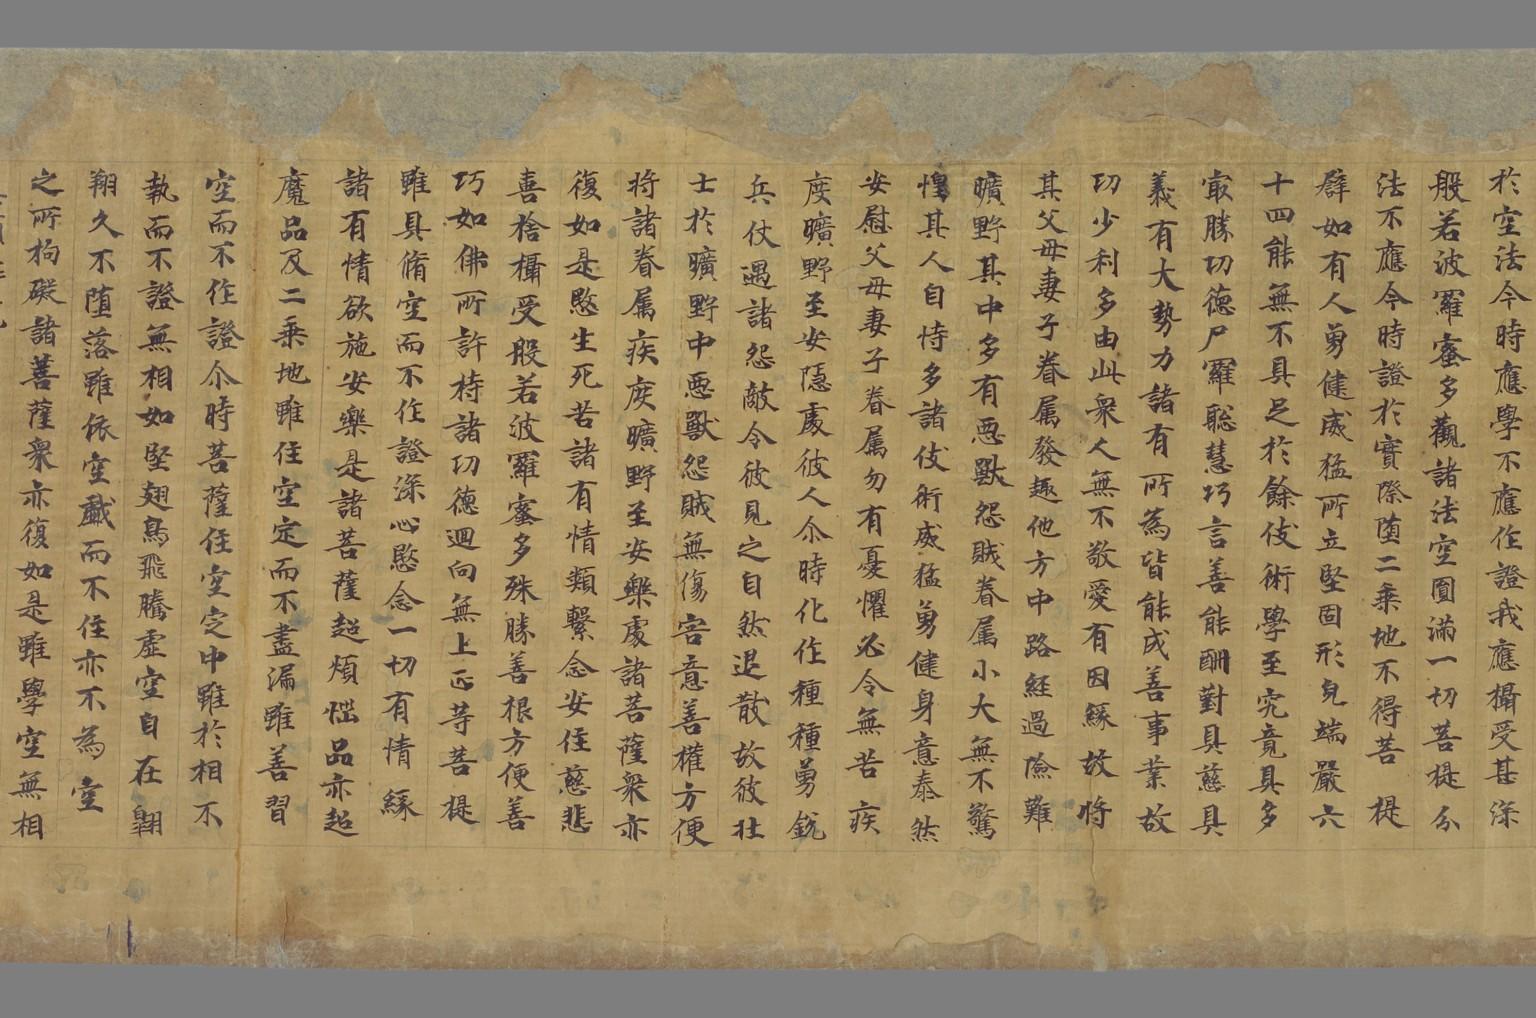 於空法今時應學不應作證我應攝受甚深
般若波羅蜜多觀諸法空圓滿一切菩提分
法不應今時證於實際墮二乘地不得菩提
辟如有人勇健威猛所立堅固形皃端嚴六
十四能無不具足於餘伎術學至究竟具多
冣勝功德尸羅聡慧巧言善能酬對具慈具
義有大勢力諸有所為皆能成善事業故
功少利多由此衆人無不敬愛有因縁故將
其父母妻子眷属發趣他方中路経過險難
曠野其中多有惡獸怨賊眷属小大無不驚
惶其人自恃多諸伎術威猛勇健身意泰然
安慰父母妻子眷属勿有憂懼必令無苦疾
度曠野至安隱處彼人尒時化作種種勇銳
兵仗遇諸怨敵令彼見之自然退散故彼壮
士於曠野中惡獸怨賊無傷害意善權方便
將諸眷属疾度曠野至安樂處諸菩薩衆亦
復如是愍生死苦諸有情類繫念安住慈悲
喜捨攝受般若波羅蜜多殊勝善根方便善
巧如佛所許持諸功德迴向無上正等菩提
雖具脩空而不作證深心愍念一切有情縁
諸有情欲施安樂是諸菩薩超煩惱品亦超
魔品及二乗地雖住空定而不盡漏雖善習
空而不作證尒時菩薩住空定中雖於相不
執而不證無相如堅翅鳥飛騰虚空自在翺
翔久不堕落雖依空戲而不住亦不為空
之所拘礙諸菩薩衆亦復如是雖學空無相